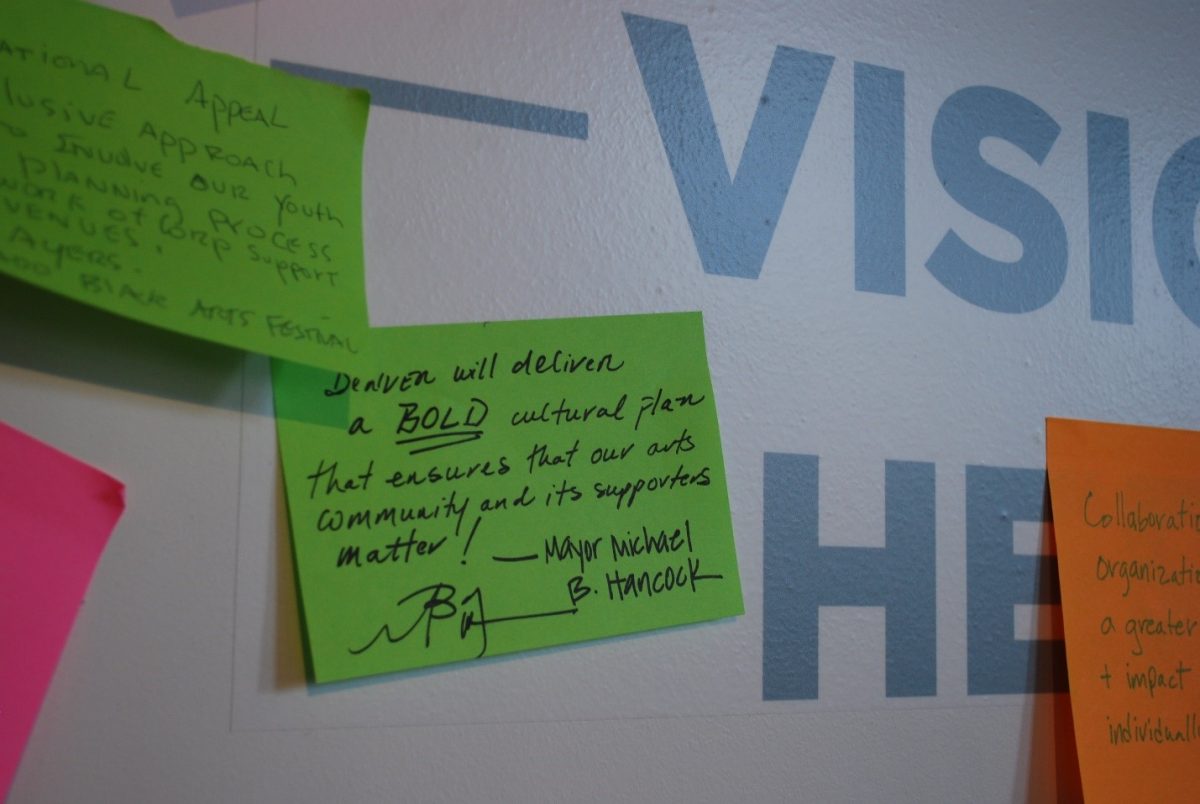 ATIONAL APPEAL
LUSIVE APPROACH
TO INVOLVE OUR YOUTH
PLANNING PROCESS
WORK of CORP SUPPORT
VENUES.
AYERS.
ADO BLACK ARTS FESTIVAL
VISIO
HE
Denver will deliver
a BOLD cultural plan
that ensures that our arts
community and its supporters
matter! — Mayor Michael
B. Hancock
Collaboratin
organizatio
a greater
+ impact
individuall